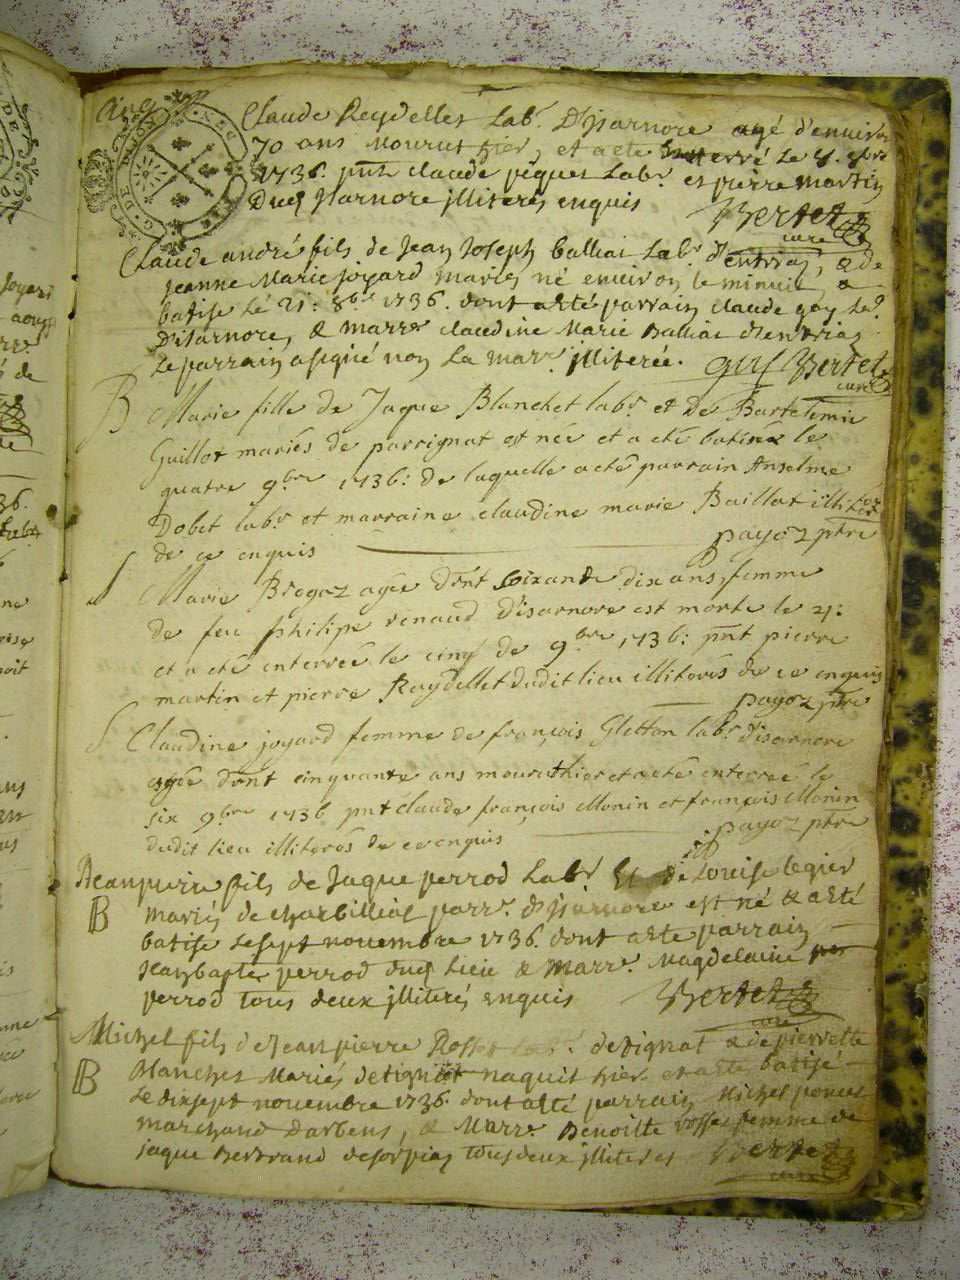 Claude Reydellet Lab.r D'jsarnore agé d'environ
70 ans mourut hier, et a eté enterré le 8. 8bre
1736. pnts claude peguet Labr. et pierre martin
Dud jsarnore jlliterés enquis
Bertet
curé
Claude andré fils de Jean Joseph balliat Labr d'entrias, & de
jeanne Marie joyard mariés né environ le minuit, &
batise le 21: 8bre 1736. dont a eté parrain claude goy la.r
D'isarnore, & marr.e claudine Marie balliat d'entrias
Le parrain a signé non la marr.e jlliterée. goy Bertet
curé
B Marie fille de Jaque Blanchet labr et de Bartelemie
Guillot mariés de parrignat est née et a eté batisée le
quatre 9bre 1736: de laquelle a eté parrain Anselme
Dobet labr. et marraine claudine marie Baillat illiterés
de ce enquis payoz ptre
S Marie Bregoz agée d'ont soixante dix ans, femme
de feu philipe renaud d'isarnore est morte le 4:
et a eté enterreé le cinq de 9bre 1736: pnt pierre
martin et pierre Raydellet dudit lieu illiterés de ce enquis
payoz ptre
S Claudine joyard femme de françois Gletton labr. d'isarnore
agée d'ont cinquante ans mourut hier et a eté enterreé le
six 9bre 1736 pnt claude françois Monin et françois Monin
dudit lieu illiterés de ce enquis payoz ptre
Jeanpierre fils de Jaque perrod Labr. Et de Louise legier
B mariés de charbilliat parr.e d'jsarnore est né & a eté
batise le sept novembre 1736. dont a eté parrain
jeanbapte perrod dud lieu & marr.e Magdelaine
perrod tous deux jlliterés enquis Bertet
curé
Michel fils de Jean pierre Rosset de tignat & de pierrette
B Blanchet Mariés de tignat naquit hier et a eté batisé
le dixsept novembre 1736. dont a eté parrain Michel poncet
marchand d'arbens, & Marr.e Benoitte rosset femme de
jaque Bertrand de sorpias tous deux jlliterés Bertet
curé